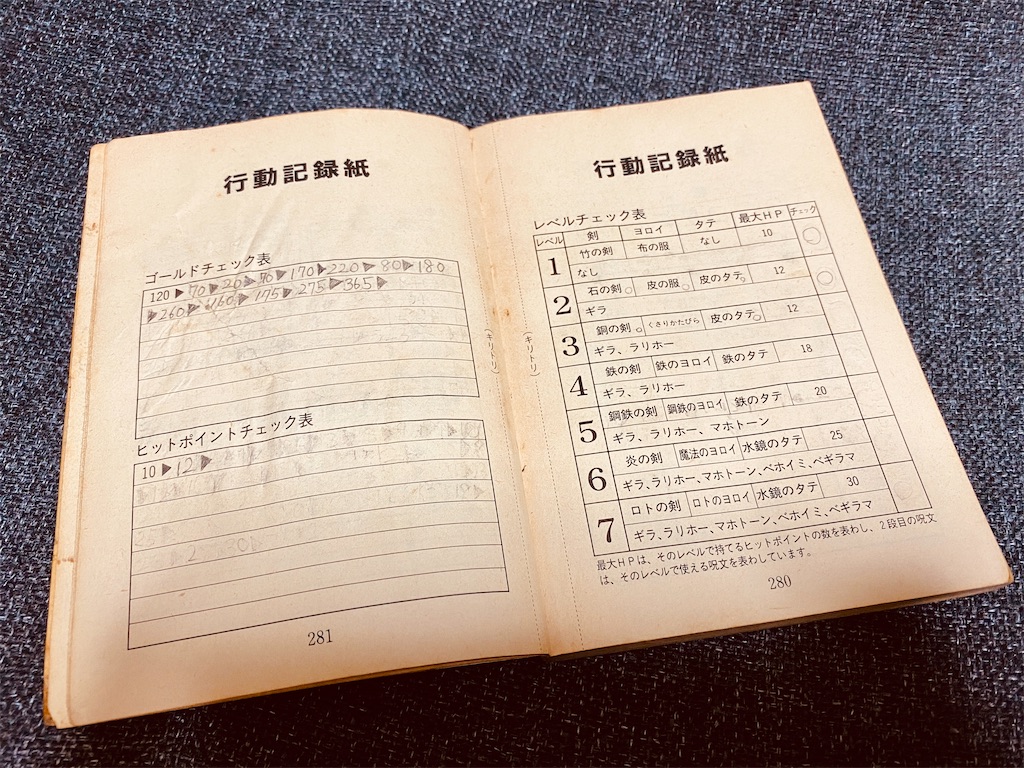 行動記録紙
レベルチェック表
レベル 剣 ヨロイ タテ 最大HP チェック
1 竹の剣 布の服 なし 10 ○
なし
2 石の剣○ 皮の服○ 皮のタテ○ 12 ○
ギラ
3 銅の剣○ くさりかたびら 皮のタテ○ 12
ギラ、ラリホー
4 鉄の剣 鉄のヨロイ 鉄のタテ 18
ギラ、ラリホー
5 鋼鉄の剣 鋼鉄のヨロイ 鉄のタテ 20
ギラ、ラリホー、マホトーン
6 炎の剣 魔法のヨロイ 水鏡のタテ 25
ギラ、ラリホー、マホトーン、ベホイミ、ベギラマ
7 ロトの剣 ロトのヨロイ 水鏡のタテ 30
ギラ、ラリホー、マホトーン、ベホイミ、ベギラマ
最大HPは、そのレベルで持てるヒットポイントの数を表わし、2段目の呪文
は、そのレベルで使える呪文を表わしています。
280
(キリトリ)
行動記録紙
ゴールドチェック表
120▶70▶20▶70▶170▶220▶80▶180
▶260▶160▶175▶275▶365▶
ヒットポイントチェック表
10▶12▶
281
(キリトリ)